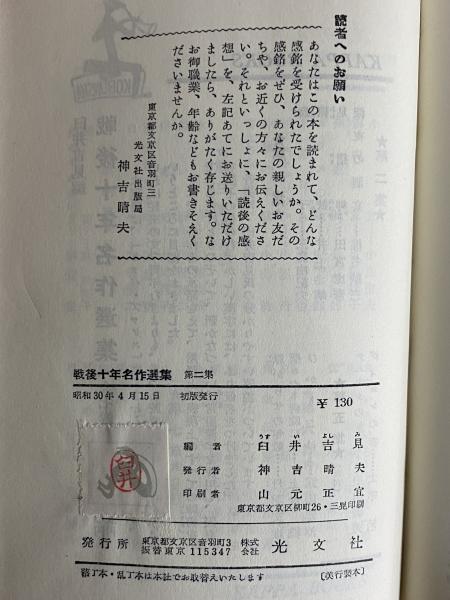 読者へのお願い
あなたはこの本を読まれて、どんな
感銘を受けられたでしょうか。その
感銘をぜひ、あなたの親しいお友だ
ちや、お近くの方々にお伝えくださ
い。それといっしょに、「読後の感
想」を、左記あてにお送りいただけ
ましたら、ありがたく存じます。な
お御職業、年齢などもお書きそえく
ださいませんか。
東京都文京区音羽町三
光文社出版局
神吉晴夫
戦後十年名作選集 第二集
昭和30年4月15日 初版発行
¥130
編者 臼井吉見
うす い よし み
発行者 神吉晴夫
印刷者 山元正宜
東京都文京区柳町26・三晃印刷
臼井
発行所 東京都文京区音羽町3 株式会社 光文社
振替東京115347
落丁本・乱丁本は本社でお取替えいたします
(美行製本)